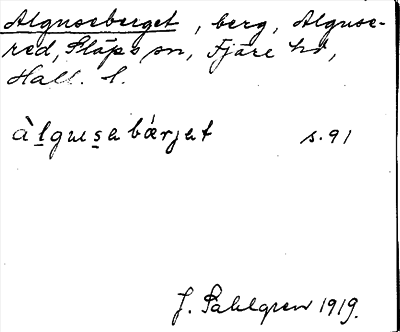 Alguseberget, berg, Alguse-
red, Släps sn, Fjäre hd,
Hall. l.
àlgusabǽrjat s. 91
J. Sahlgren 1919.